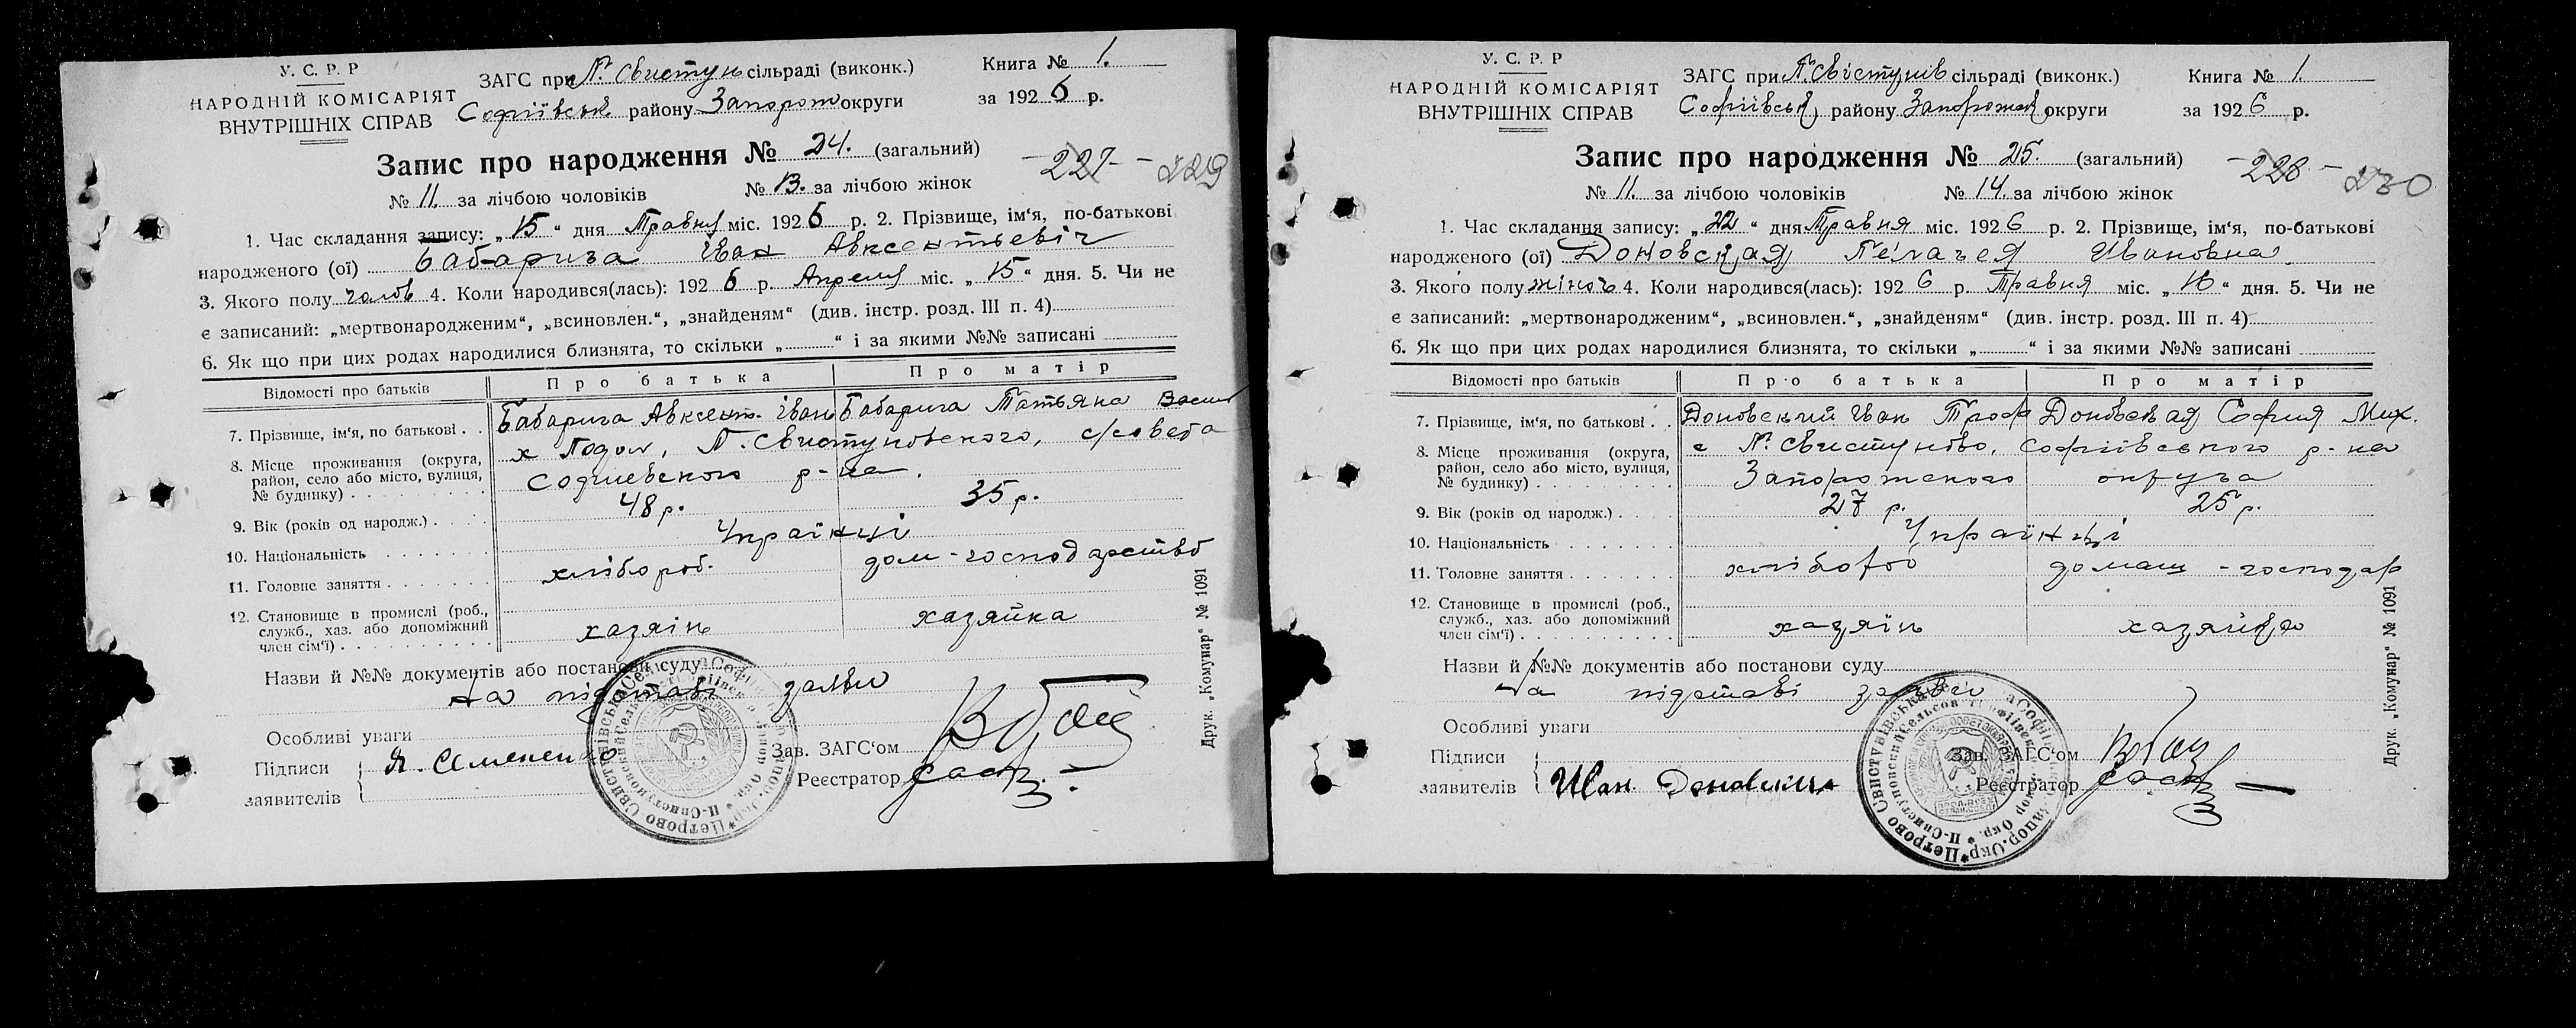 У. С. Р. Р
НАРОДНІЙ КОМІСАРІЯТ
ВНУТРІШНІХ СПРАВ
ЗАГС при П. Свистун сільраді (виконк.)
Софіївськ. району Запорож округи
Книга № 1.
за 1926 р.
Запис про народження № 24. (загальний)
№ 11. за лічбою чоловіків № 13. за лічбою жінок
-227- -229
1. Час складання запису: „15“ дня Травня міс. 1926 р. 2. Прізвище, ім‘я, по-батькові
народженого (ої) Бабарига Іван Авксентьевіч
3. Якого полу чолов 4. Коли народився(лась): 1926 р. Апреля міс. „15“ дня. 5. Чи не
є записаний: „мертвонародженим“, „всиновлен.“, „знайденям“ (див. інстр. розд. III п. 4)
6. Як що при цих родах народилися близнята, то скільки „ “ і за якими №№ записані
Відомості про батьків Про батька Про матір
7. Прізвище, ім‘я, по батькові . . Бабарига Авксент. Іван Бабарига Татьяна Васил
8. Місце проживання (округа, район, село або місто, вулиця, № будинку) х Подол, П. Свистуновского, с/совета
Софиевского р-на.
9. Вік (років од народж.) . . . 48 р. 35 р.
10. Національність Українці
11. Головне заняття хлібороб. дом-господарство
12. Становище в промислі (роб., служб., хаз. або допоміжний член сім‘ї) хазяін хазяйка
Назви й №№ документів або постанови суду
на підставі заяви
Особливі уваги
Підписи
заявителів
Я. Семененко
Зав. ЗАГС‘ом
Реєстратор
Друк. „Комунар“ № 1091
У. С. Р. Р
НАРОДНІЙ КОМІСАРІЯТ
ВНУТРІШНІХ СПРАВ
ЗАГС при П. Свістунів сільраді (виконк.)
Софіївськ району Запорожск округи
Книга № 1.
за 1926 р.
Запис про народження № 25. (загальний)
№ 11. за лічбою чоловіків № 14. за лічбою жінок
-228- 230
1. Час складання запису: „22“ дня Травня міс. 1926 р. 2. Прізвище, ім‘я, по-батькові
народженого (ої) Доновская Пелагея Ивановна
3. Якого полу жіноч 4. Коли народився(лась): 1926 р. Травня міс. „10“ дня. 5. Чи не
є записаний: „мертвонародженим“, „всиновлен.“, „знайденям“ (див. інстр. розд. III п. 4)
6. Як що при цих родах народилися близнята, то скільки „ “ і за якими №№ записані
Відомості про батьків Про батька Про матір
7. Прізвище, ім‘я, по батькові . . Доновский Иван Троф Доновская София Мих.
8. Місце проживання (округа, район, село або місто, вулиця, № будинку) с П. Свистуново, Софіівського р-на
Запорожского округа
9. Вік (років од народж.) . . . 27 р. 25 р.
10. Національність Українці
11. Головне заняття хлібороб домаш-господар
12. Становище в промислі (роб., служб., хаз. або допоміжний член сім‘ї) хазяїн хазяйка
Назви й №№ документів або постанови суду
На підставі заяви
Особливі уваги
Підписи
заявителів
Иван Доновский
Зав. ЗАГС‘ом
Реєстратор
Друк. „Комунар“ № 1091